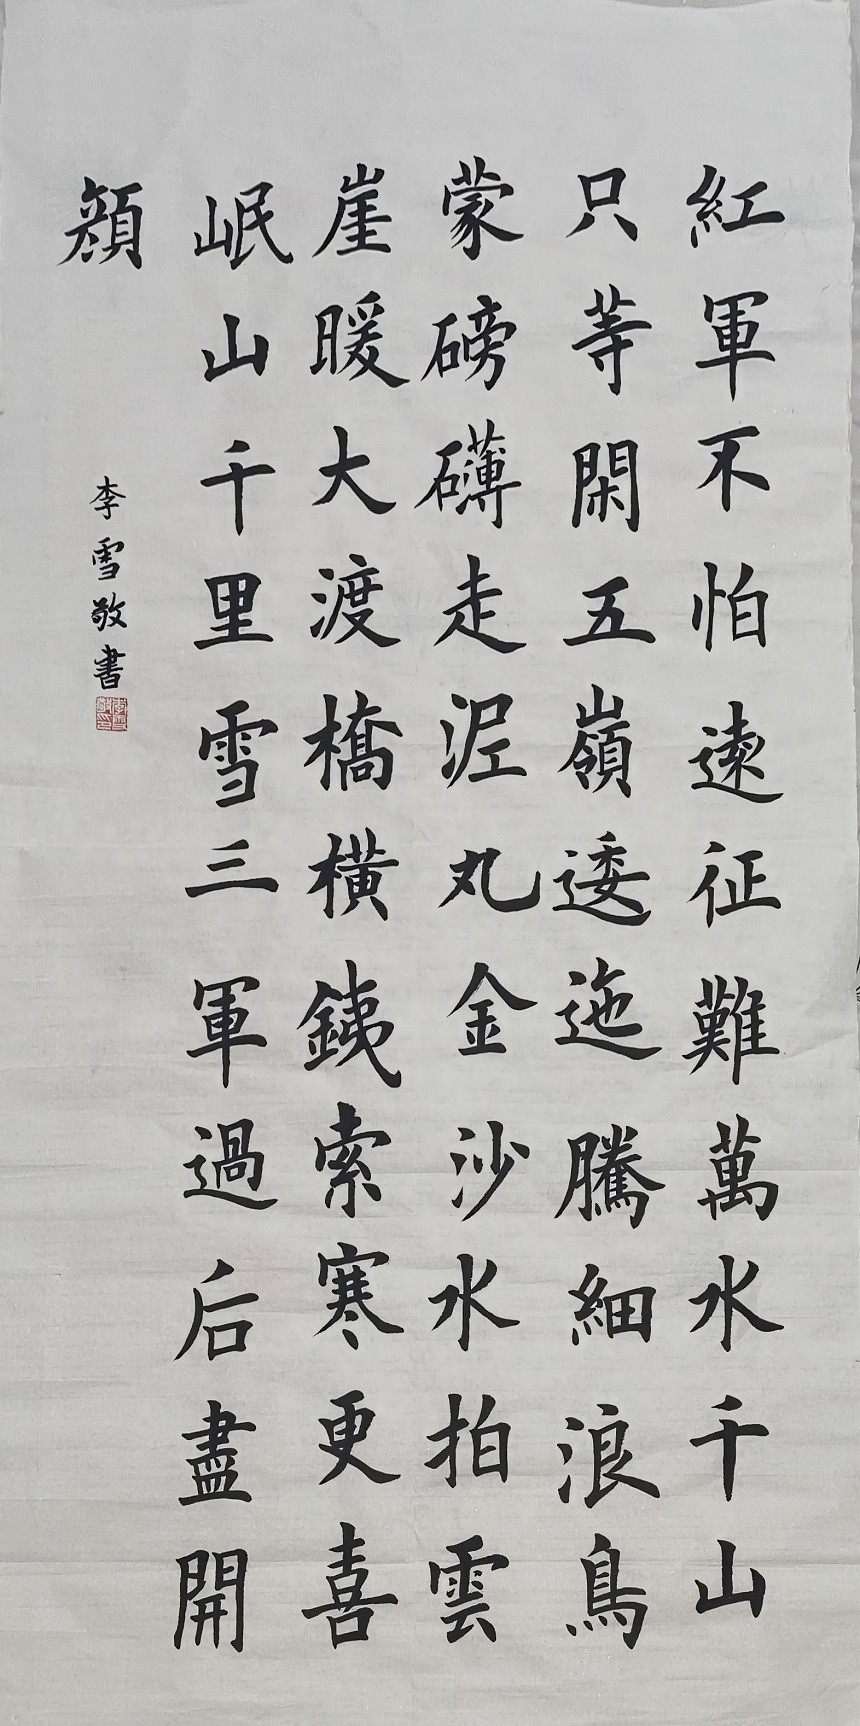 紅軍不怕遠征難萬水千山
只等閑五嶺逶迤騰細浪鳥
蒙磅礴走泥丸金沙水拍雲
崖暖大渡橋橫銕索寒更喜
岷山千里雪三軍過后盡開
顏
李雪敬書